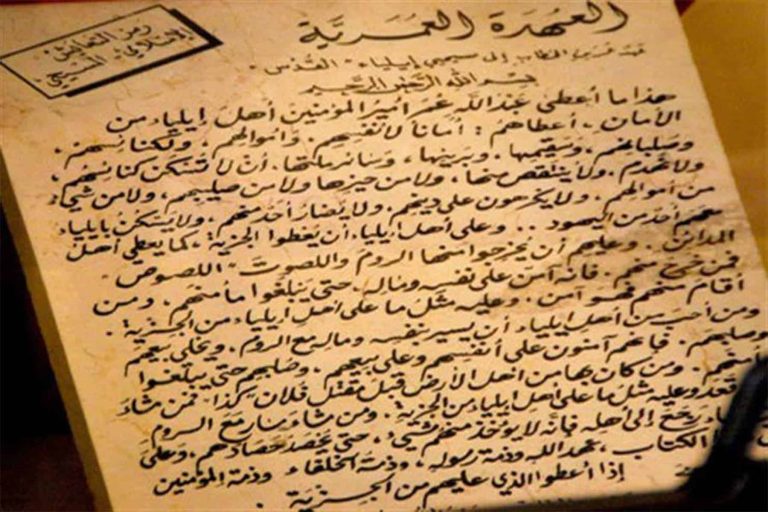 العهدة العمرية
رمز التعايش
الإسلامي المسيحي
إلى مسيحيي إيلياء "القدس"
بسم الله الرحمن الرحيم
هذا ما أعطى عبد الله عمر أمير المؤمنين أهل إيلياء من
الأمان، أعطاهم: أمانا لأنفسهم. وأموالهم، ولكنائسهم.
وصلبانهم، وسقيمها. وبريئها، وسائر ملتها. أن لا تسكن كنائسهم،
ولا تهدم. ولا ينتقص منها، ولا من حيزها ولا من صليبهم، ولا من شيء
من أموالهم. ولا يكرهون على دينهم. ولا يضار أحد منهم، ولا يسكن بإيلياء
معهم أحد من اليهود.. وعلى أهل إيلياء أن يعطوا الجزية، كما يعطي أهل
المدائن. وعليهم أن يخرجوا منها الروم واللصوت "اللصوص"
فمن خرج منهم. فإنه آمن على نفسه وماله، حتى يبلغوا مأمنهم، ومن
أقام منهم فهو آمن. وعليه مثل ما على أهل إيلياء من الجزية.
ومن أحب من أهل إيلياء أن يسير بنفسه وماله مع الروم. ويخلي بيعهم
وصلبهم. فإنهم آمنون على أنفسهم وعلى بيعهم، وصلبهم حتى يبلغوا
مأمنهم. ومن كان بها من أهل الأرض قبل مقتل فلان "كذا" فمن شاء
قعد وعليه مثل ما على أهل إيلياء من الجزية. ومن شاء سار مع الروم
رجع إلى أهله فإنه لا يؤخذ منهم شيء، حتى يحصد حصادهم، وعلى
الكتاب، عهد الله وذمة رسوله، وذمة الخلفاء وذمة المؤمنين
إذا أعطوا الذي عليهم من الجزية.